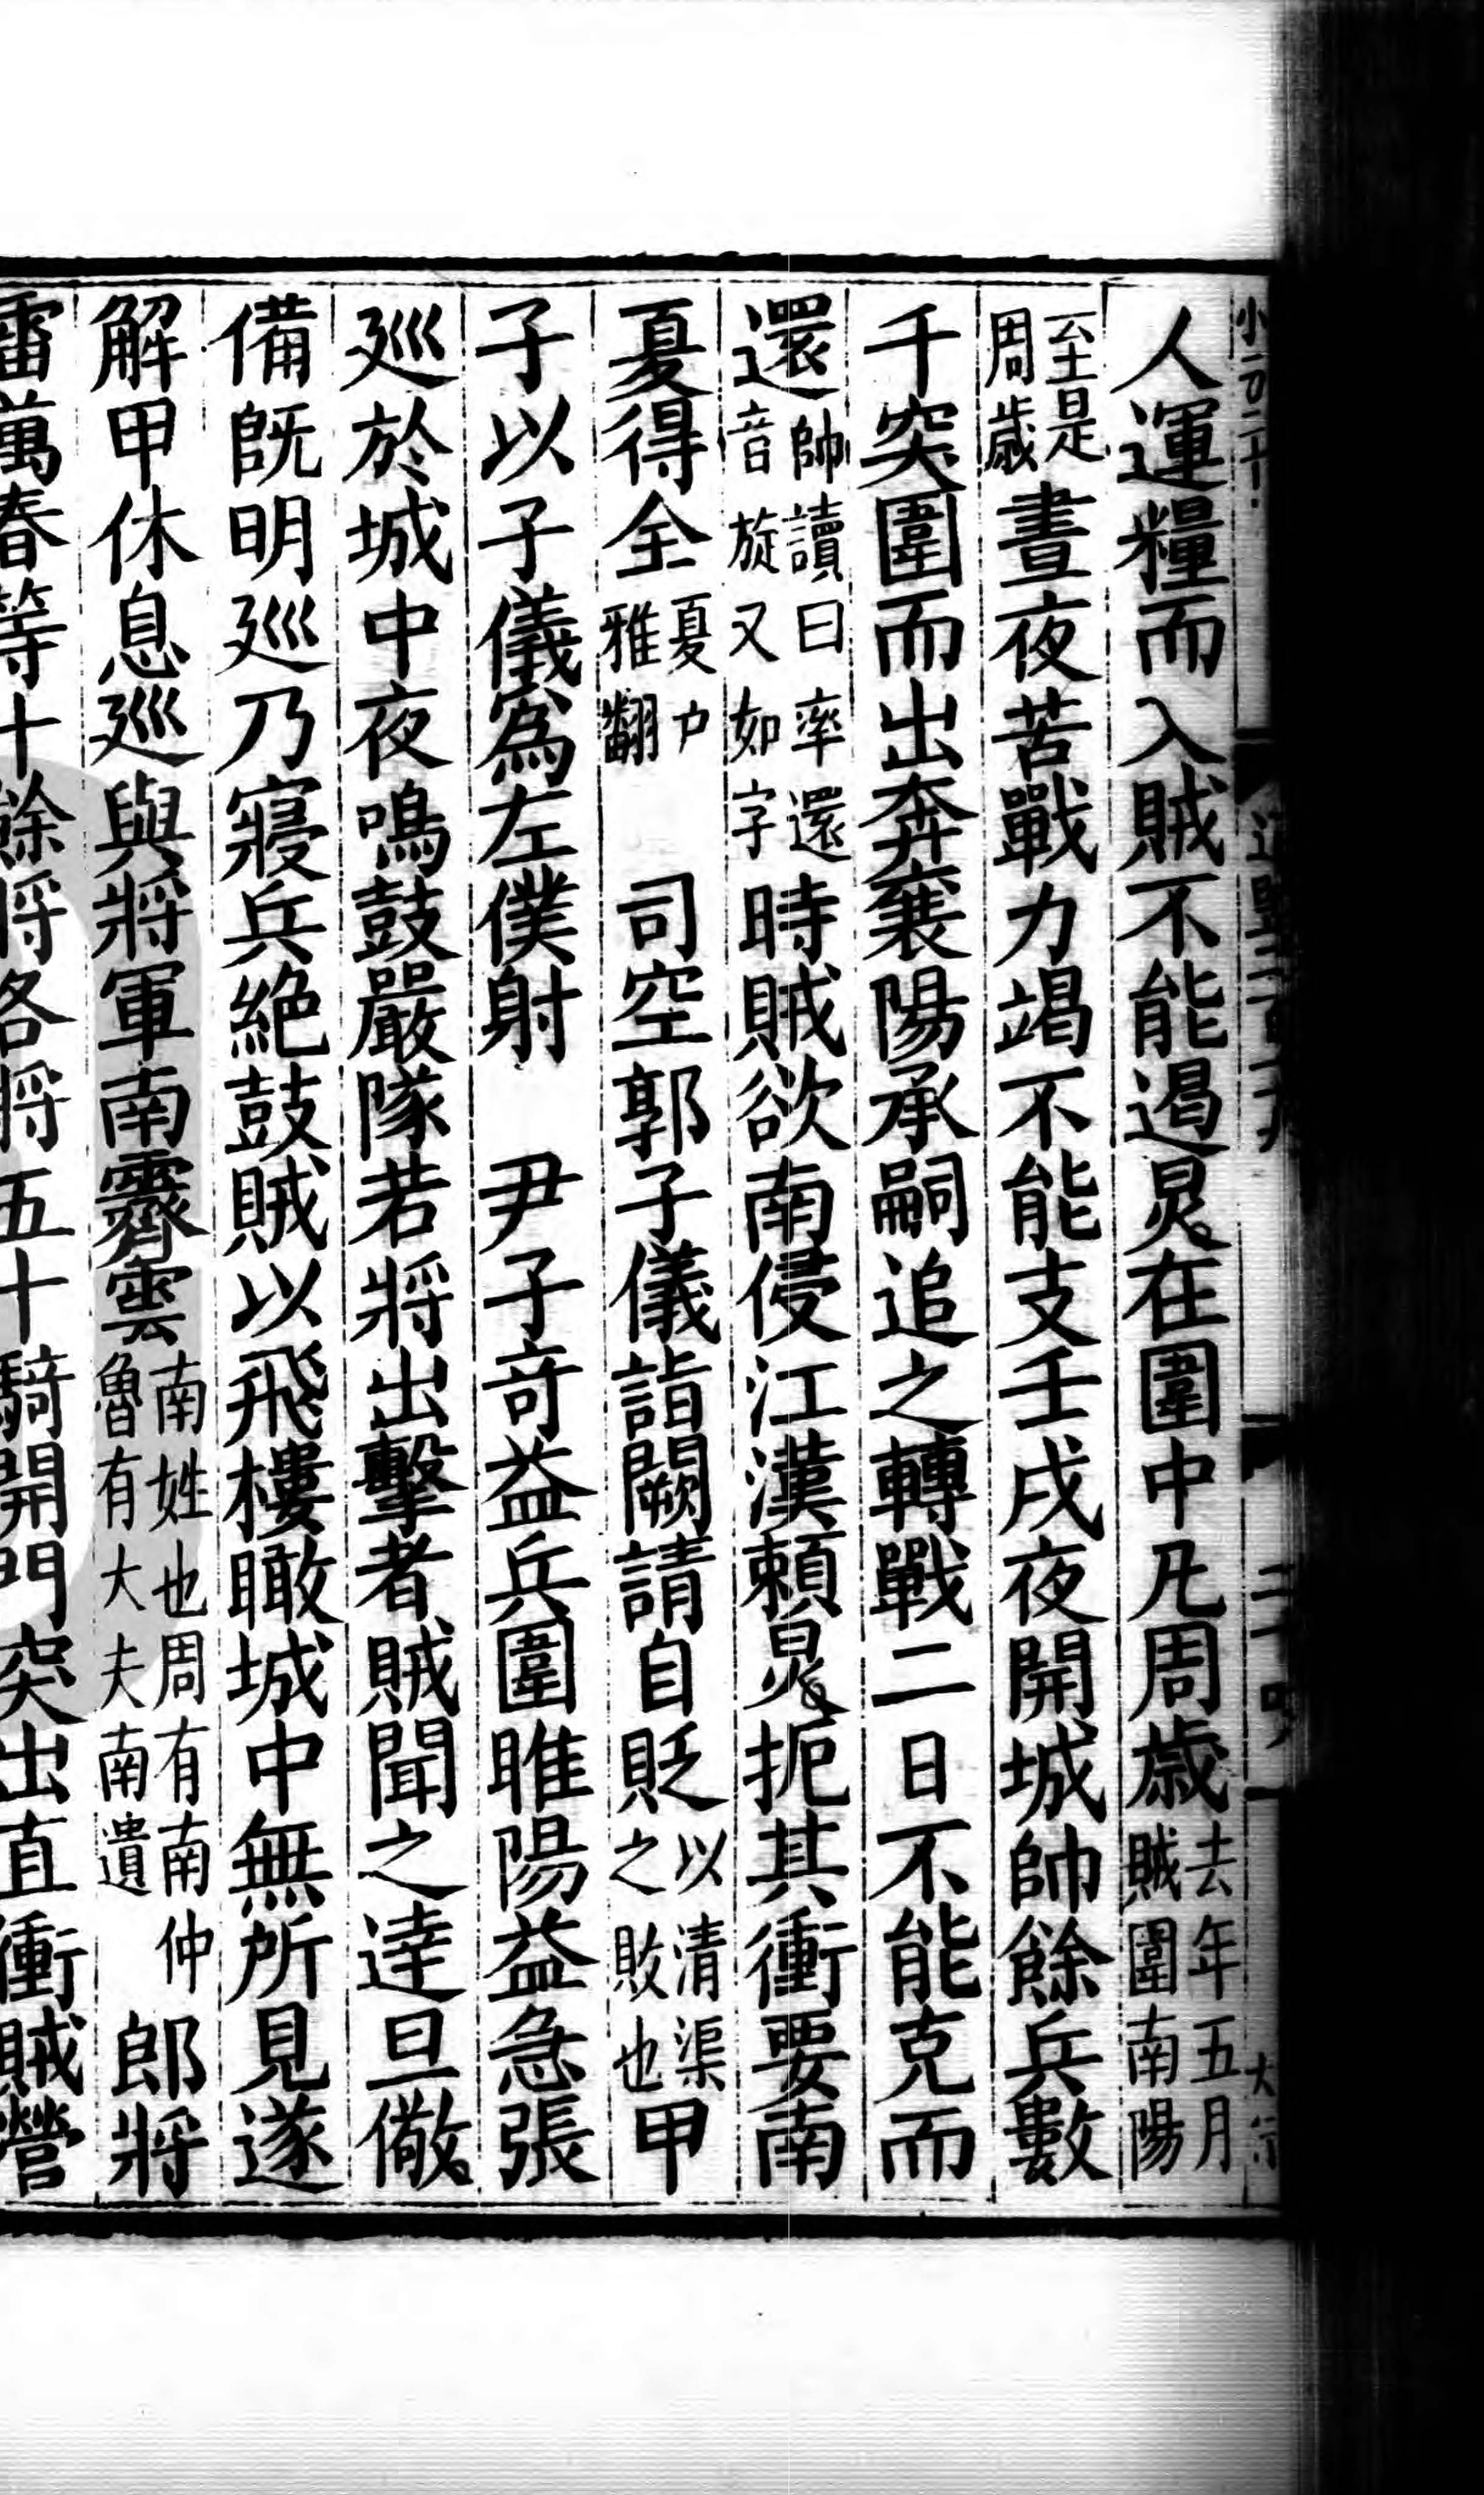 人運糧而入賊不能遏炅在圍中凡周歲去年五月賊圍南陽
至是周歲晝夜苦戰力竭不能支壬戌夜開城帥餘兵數
千突圍而出奔襄陽承嗣追之轉戰二日不能克而
還帥讀曰率還音旋又如字時賊欲南侵江漢賴炅扼其衝要南
夏得全夏户雅翻 司空郭子儀詣闕請自貶以清渠之敗也甲
子以子儀爲左僕射 尹子竒益兵圍睢陽益急張
廵於城中夜鳴鼓嚴隊若將出擊者賊聞之逹旦儆
備旣明廵乃寢兵絶鼓賊以飛樓瞰城中無所見遂
解甲休息廵與將軍南霽雲南姓也周有南仲魯有大夫南遺郎將
雷萬春等十餘將各將五十騎開門突出直衝賊營